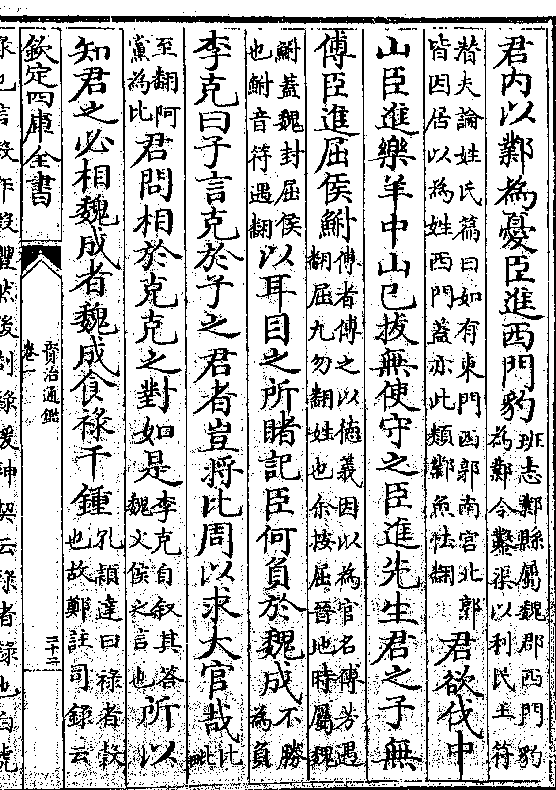 君内以鄴為憂臣進西門豹班志鄴縣屬魏郡西門豹
為鄴令鑿渠以利民王符
潛夫論姓氏篇曰如有東門西郭南宫北郭
皆因居以為姓西門蓋亦此類鄴魚怯翻君欲伐中
山臣進樂羊中山已拔無使守之臣進先生君之子無
傅臣進屈侯鮒傅者傅之以徳義因以為官名傅芳遇
翻屈九勿翻姓也余按屈晉地時屬魏
鮒蓋魏封屈侯
也鮒音符遇翻以耳目之所睹記臣何負於魏成不勝
為負
李克曰子言克於子之君者豈將比周以求大官哉比
毗
至翻阿
黨為比君問相於克克之對如是李克自叙其答
魏文侯之言也所以
知君之必相魏成者魏成食禄千鍾孔穎達曰禄者榖
也故鄭註司録云
欽定四庫全書
資治通鑑
卷一
二十二